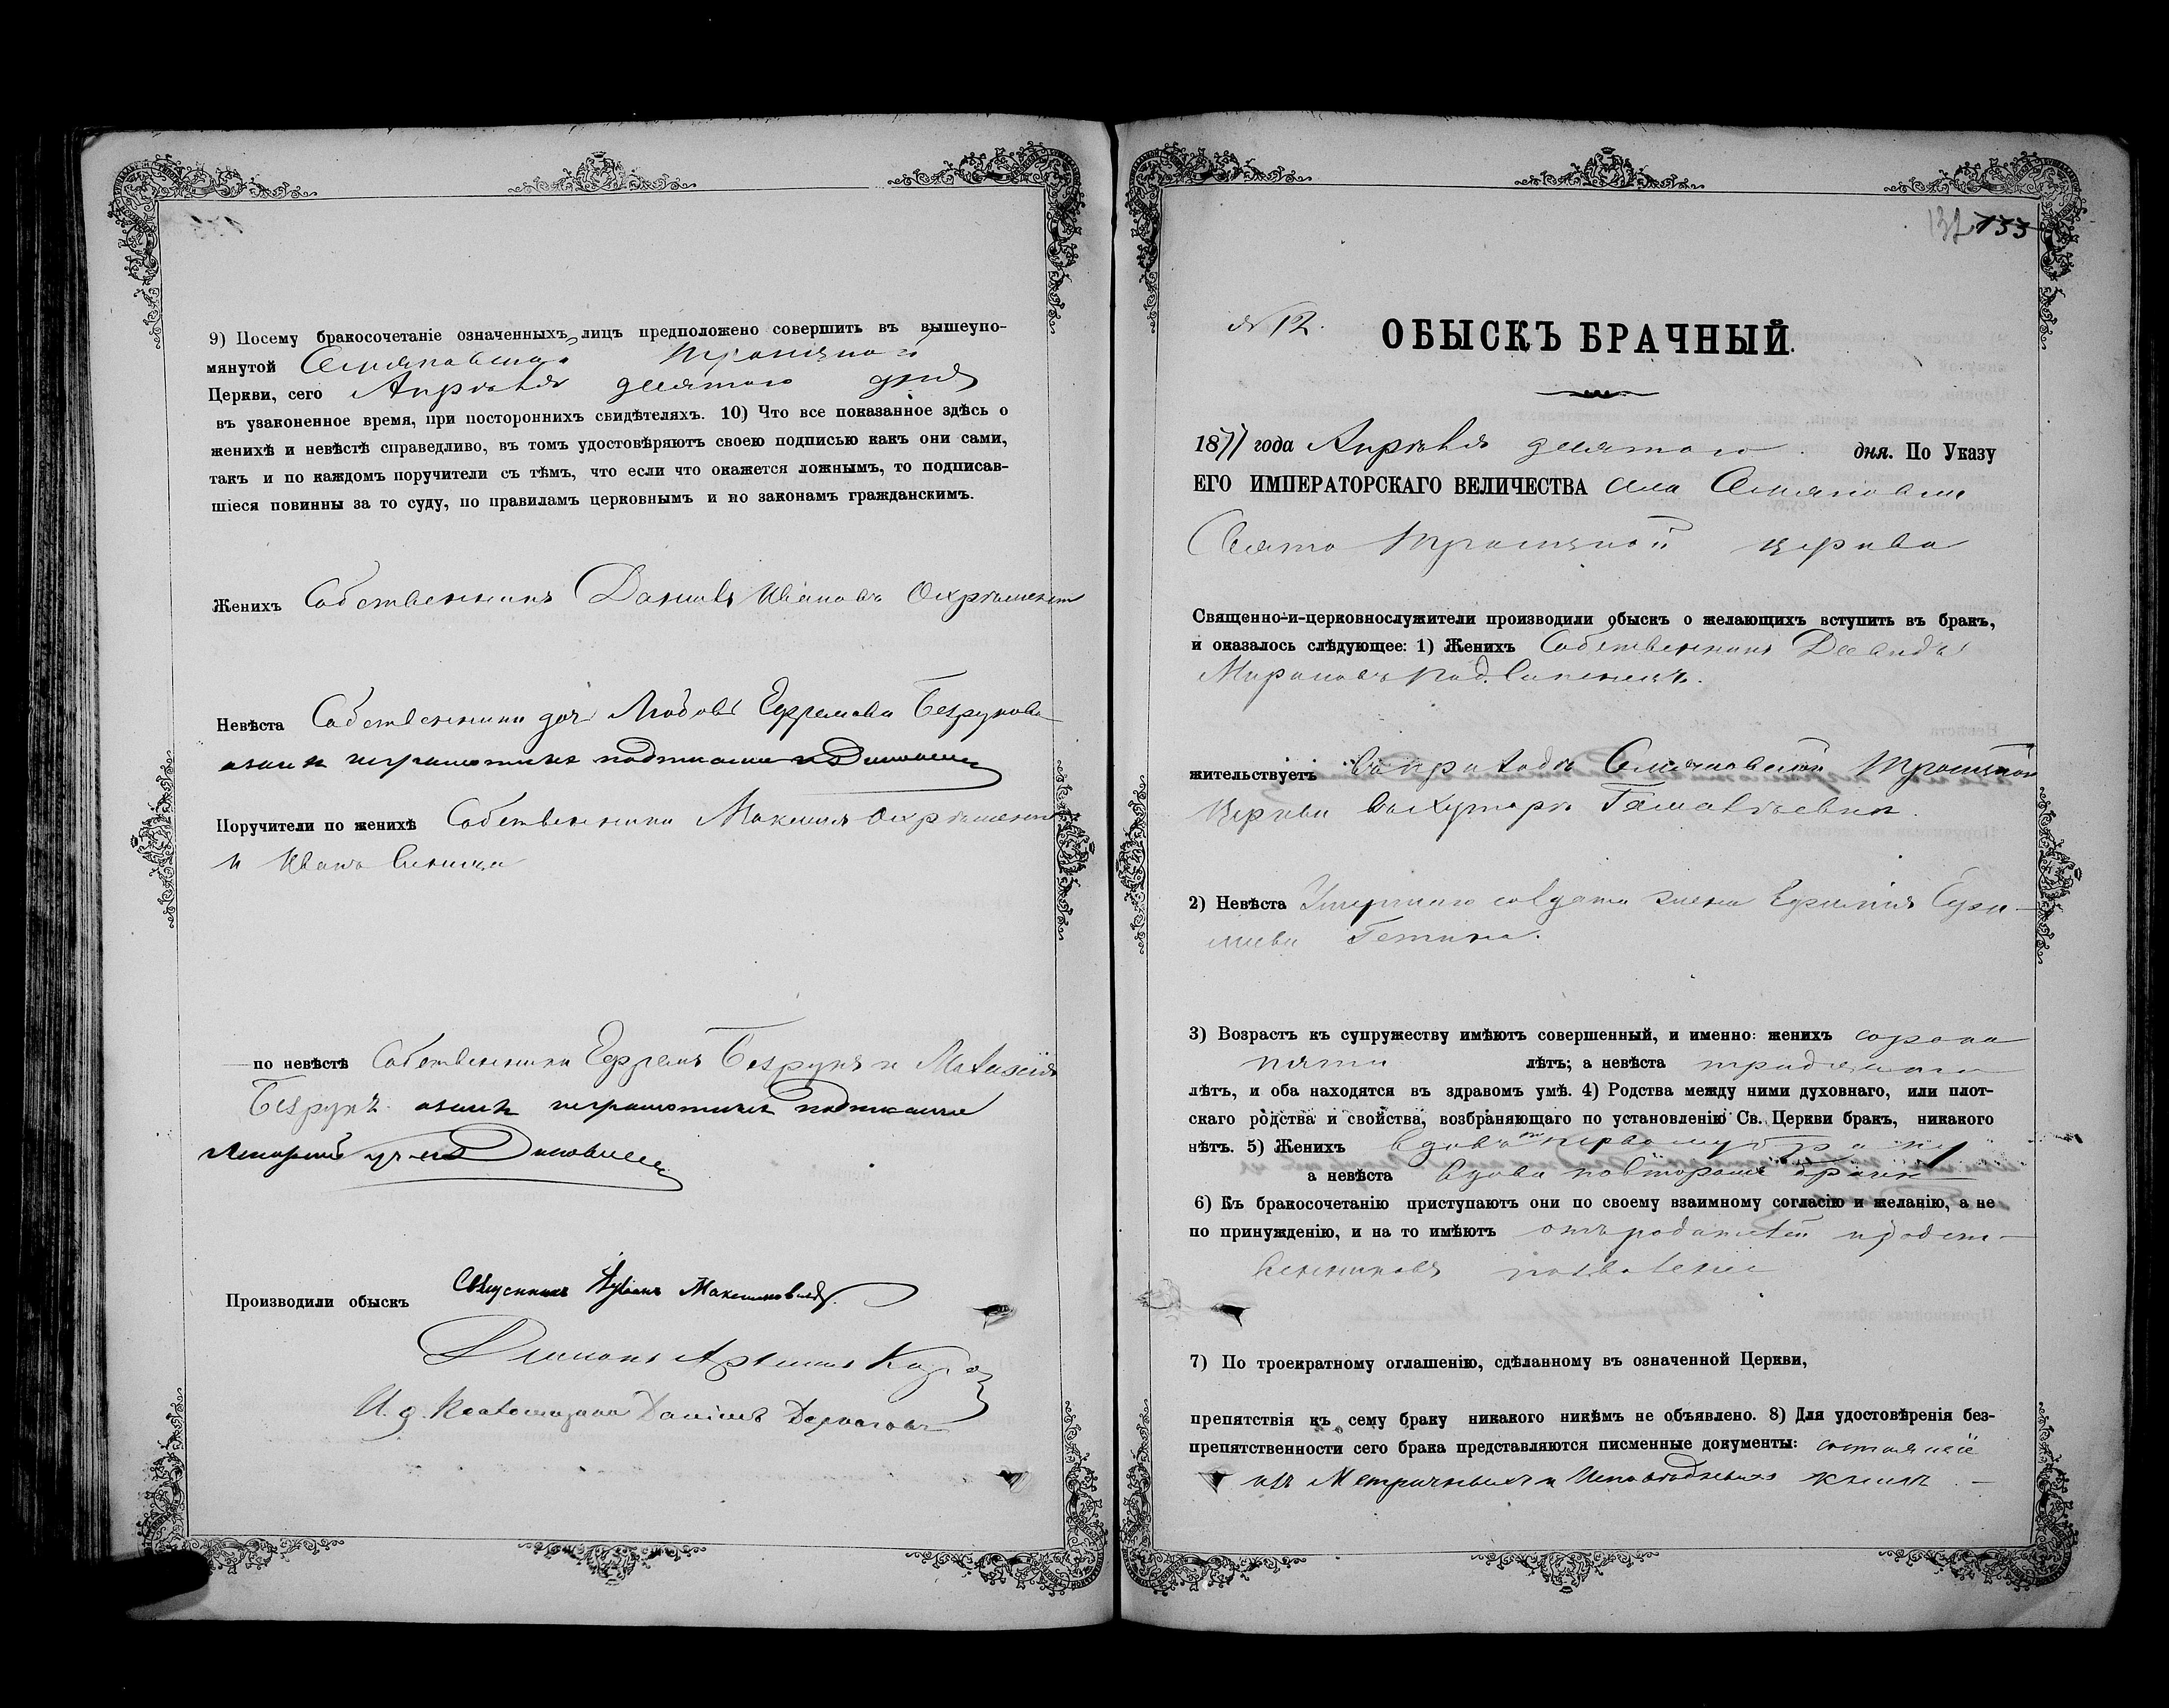 9) Посему бракосочетаніе означенныхъ лицъ предположено совершить въ вышеупо-
мянутой Семяновской Троицкой
Церкви, сего Апрѣля десятого дня
въ узаконенное время, при постороннихъ свидѣтеляхъ. 10) Что все показанное здѣсь о
женихѣ и невѣстѣ справедливо, въ томъ удостовѣряютъ своею подписью какъ они сами,
такъ и по каждомъ поручители съ тѣмъ, что если что окажется ложнымъ, то подписав-
шіеся повинны за то суду, по правиламъ церковнымъ и по законамъ гражданскимъ.
Женихъ Собственникъ Даніилъ Ивановъ
Невѣста Собственника дочь Любовь Ефремова Безрукова
а за ихъ неграмотныхъ подписался
Поручители по женихѣ Собственники Максимъ
и Иванъ Синица
по невѣстѣ Собственники Ефремъ Безрукъ и
Безрукъ. а за ихъ неграмотныхъ подписался
Производили обыскъ Священникъ Максимовичъ
Дьяконъ
И. д. Псаломщика Даніилъ
132 133
№ 12.
ОБЫСКЪ БРАЧНЫЙ.
1877 года Апрѣля десятого дня. По Указу
ЕГО ИМПЕРАТОРСКАГО ВЕЛИЧЕСТВА села Семяновки
Свято Троицкой церкви
Священно-и-церковнослужители производили обыскъ о желающихъ вступить въ бракъ,
и оказалось слѣдующее: 1) Женихъ Собственникъ Давидъ
Мироновъ
жительствуетъ въ приходѣ Семяновской Троицкой
Церкви въ хуторѣ
2) Невѣста Умершаго солдата жена Евфимія
3) Возрастъ къ супружеству имѣютъ совершенный, и именно: женихъ сорока
пяти лѣтъ; а невѣста тридцати
лѣтъ, и оба находятся въ здравомъ умѣ. 4) Родства между ними духовнаго, или плот-
скаго родства и свойства, возбраняющаго по установленію Св. Церкви бракъ, никакого
нѣтъ. 5) Женихъ вдовъ по первому браку
а невѣста вдова по второмъ бракѣ
6) Къ бракосочетанію приступаютъ они по своему взаимному согласію и желанію, а не
по принужденію, и на то имѣютъ отъ родителей и родст-
венниковъ позволеніе
7) По троекратному оглашенію, сдѣланному въ означенной Церкви,
препятствія къ сему браку никакого никѣмъ не объявлено. 8) Для удостовѣренія без-
препятственности сего брака представляются писменные документы:
изъ Метричныхъ и Исповѣдныхъ книгъ.